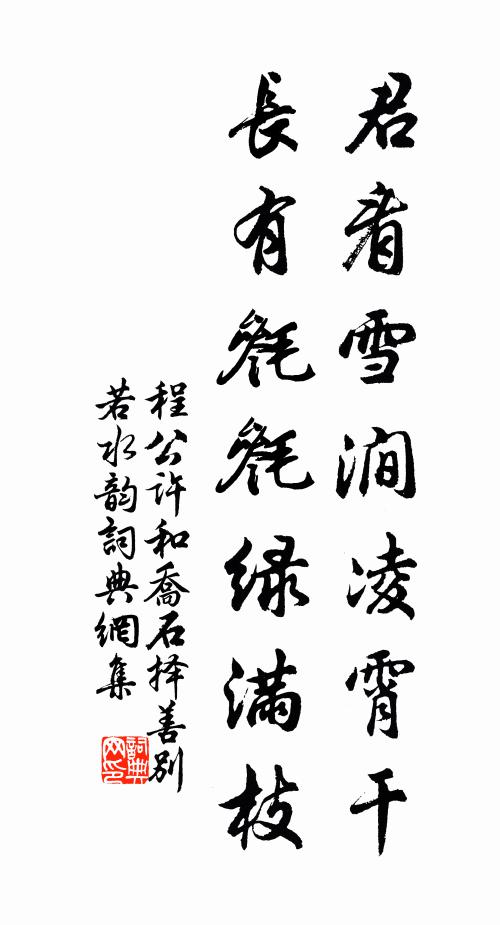 君看雪涧凌霄干
長有毿毿绿滿枝
程公许和喬石择善别
若水韵詞典網集
詞典网印